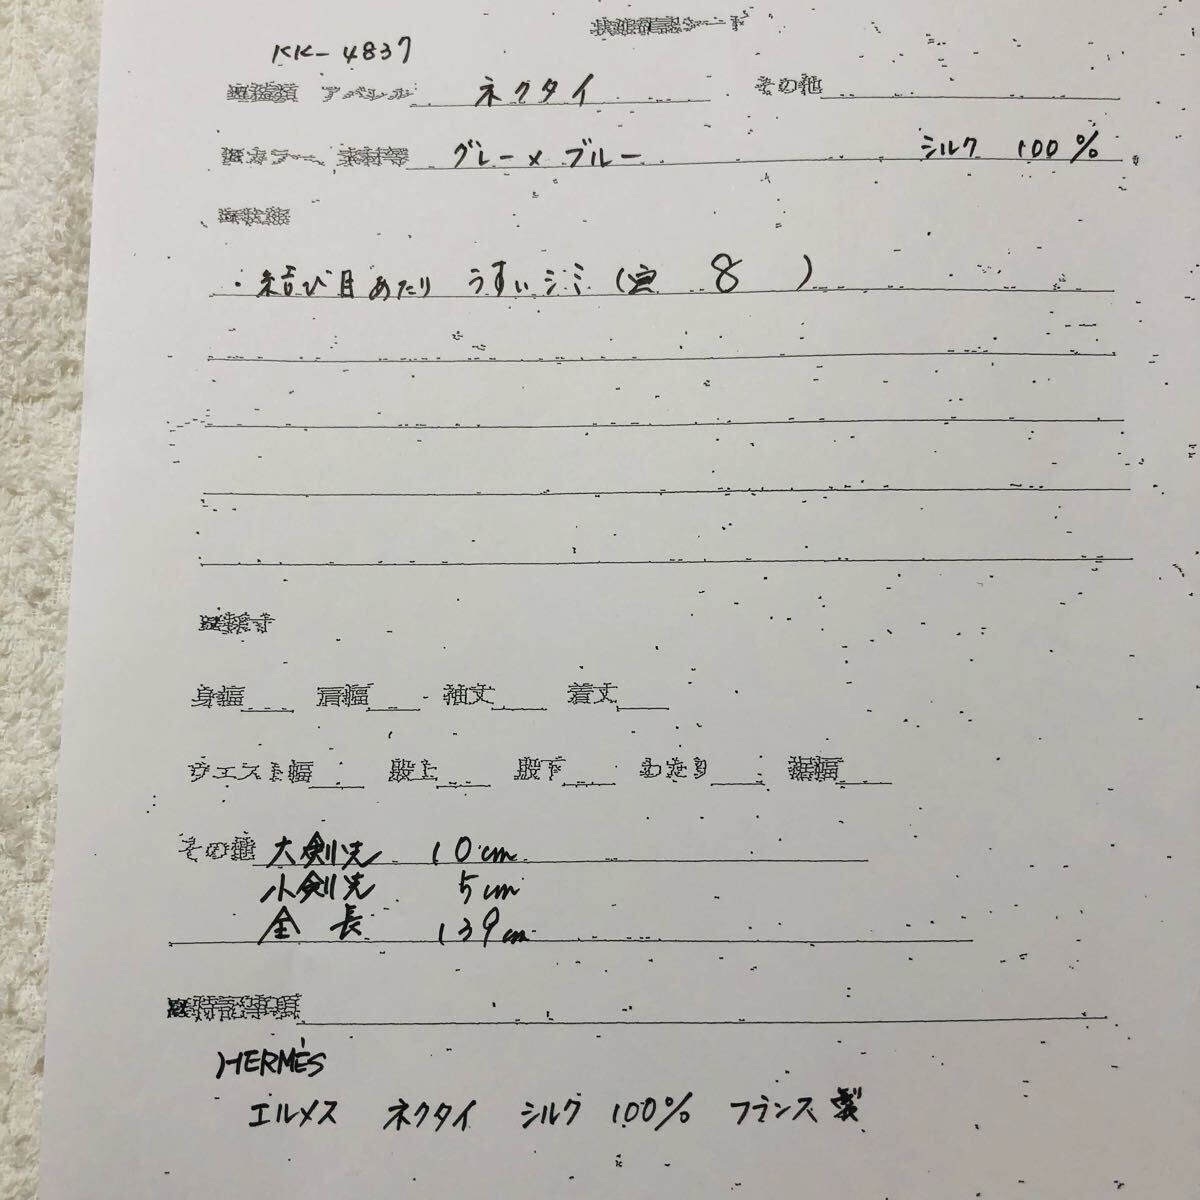 状態確認シート
KK-4837
アパレル ネクタイ その他
カラー、素材等 グレー×ブルー シルク 100%
・結び目あたり うすいシミ( 8 )
身幅 肩幅 袖丈 着丈
ウエスト幅 股上 股下 わたり 裾幅
その他 大剣先 10cm
小剣先 5cm
全長 139cm
特記事項
HERMÈS
エルメス ネクタイ シルク 100% フランス製